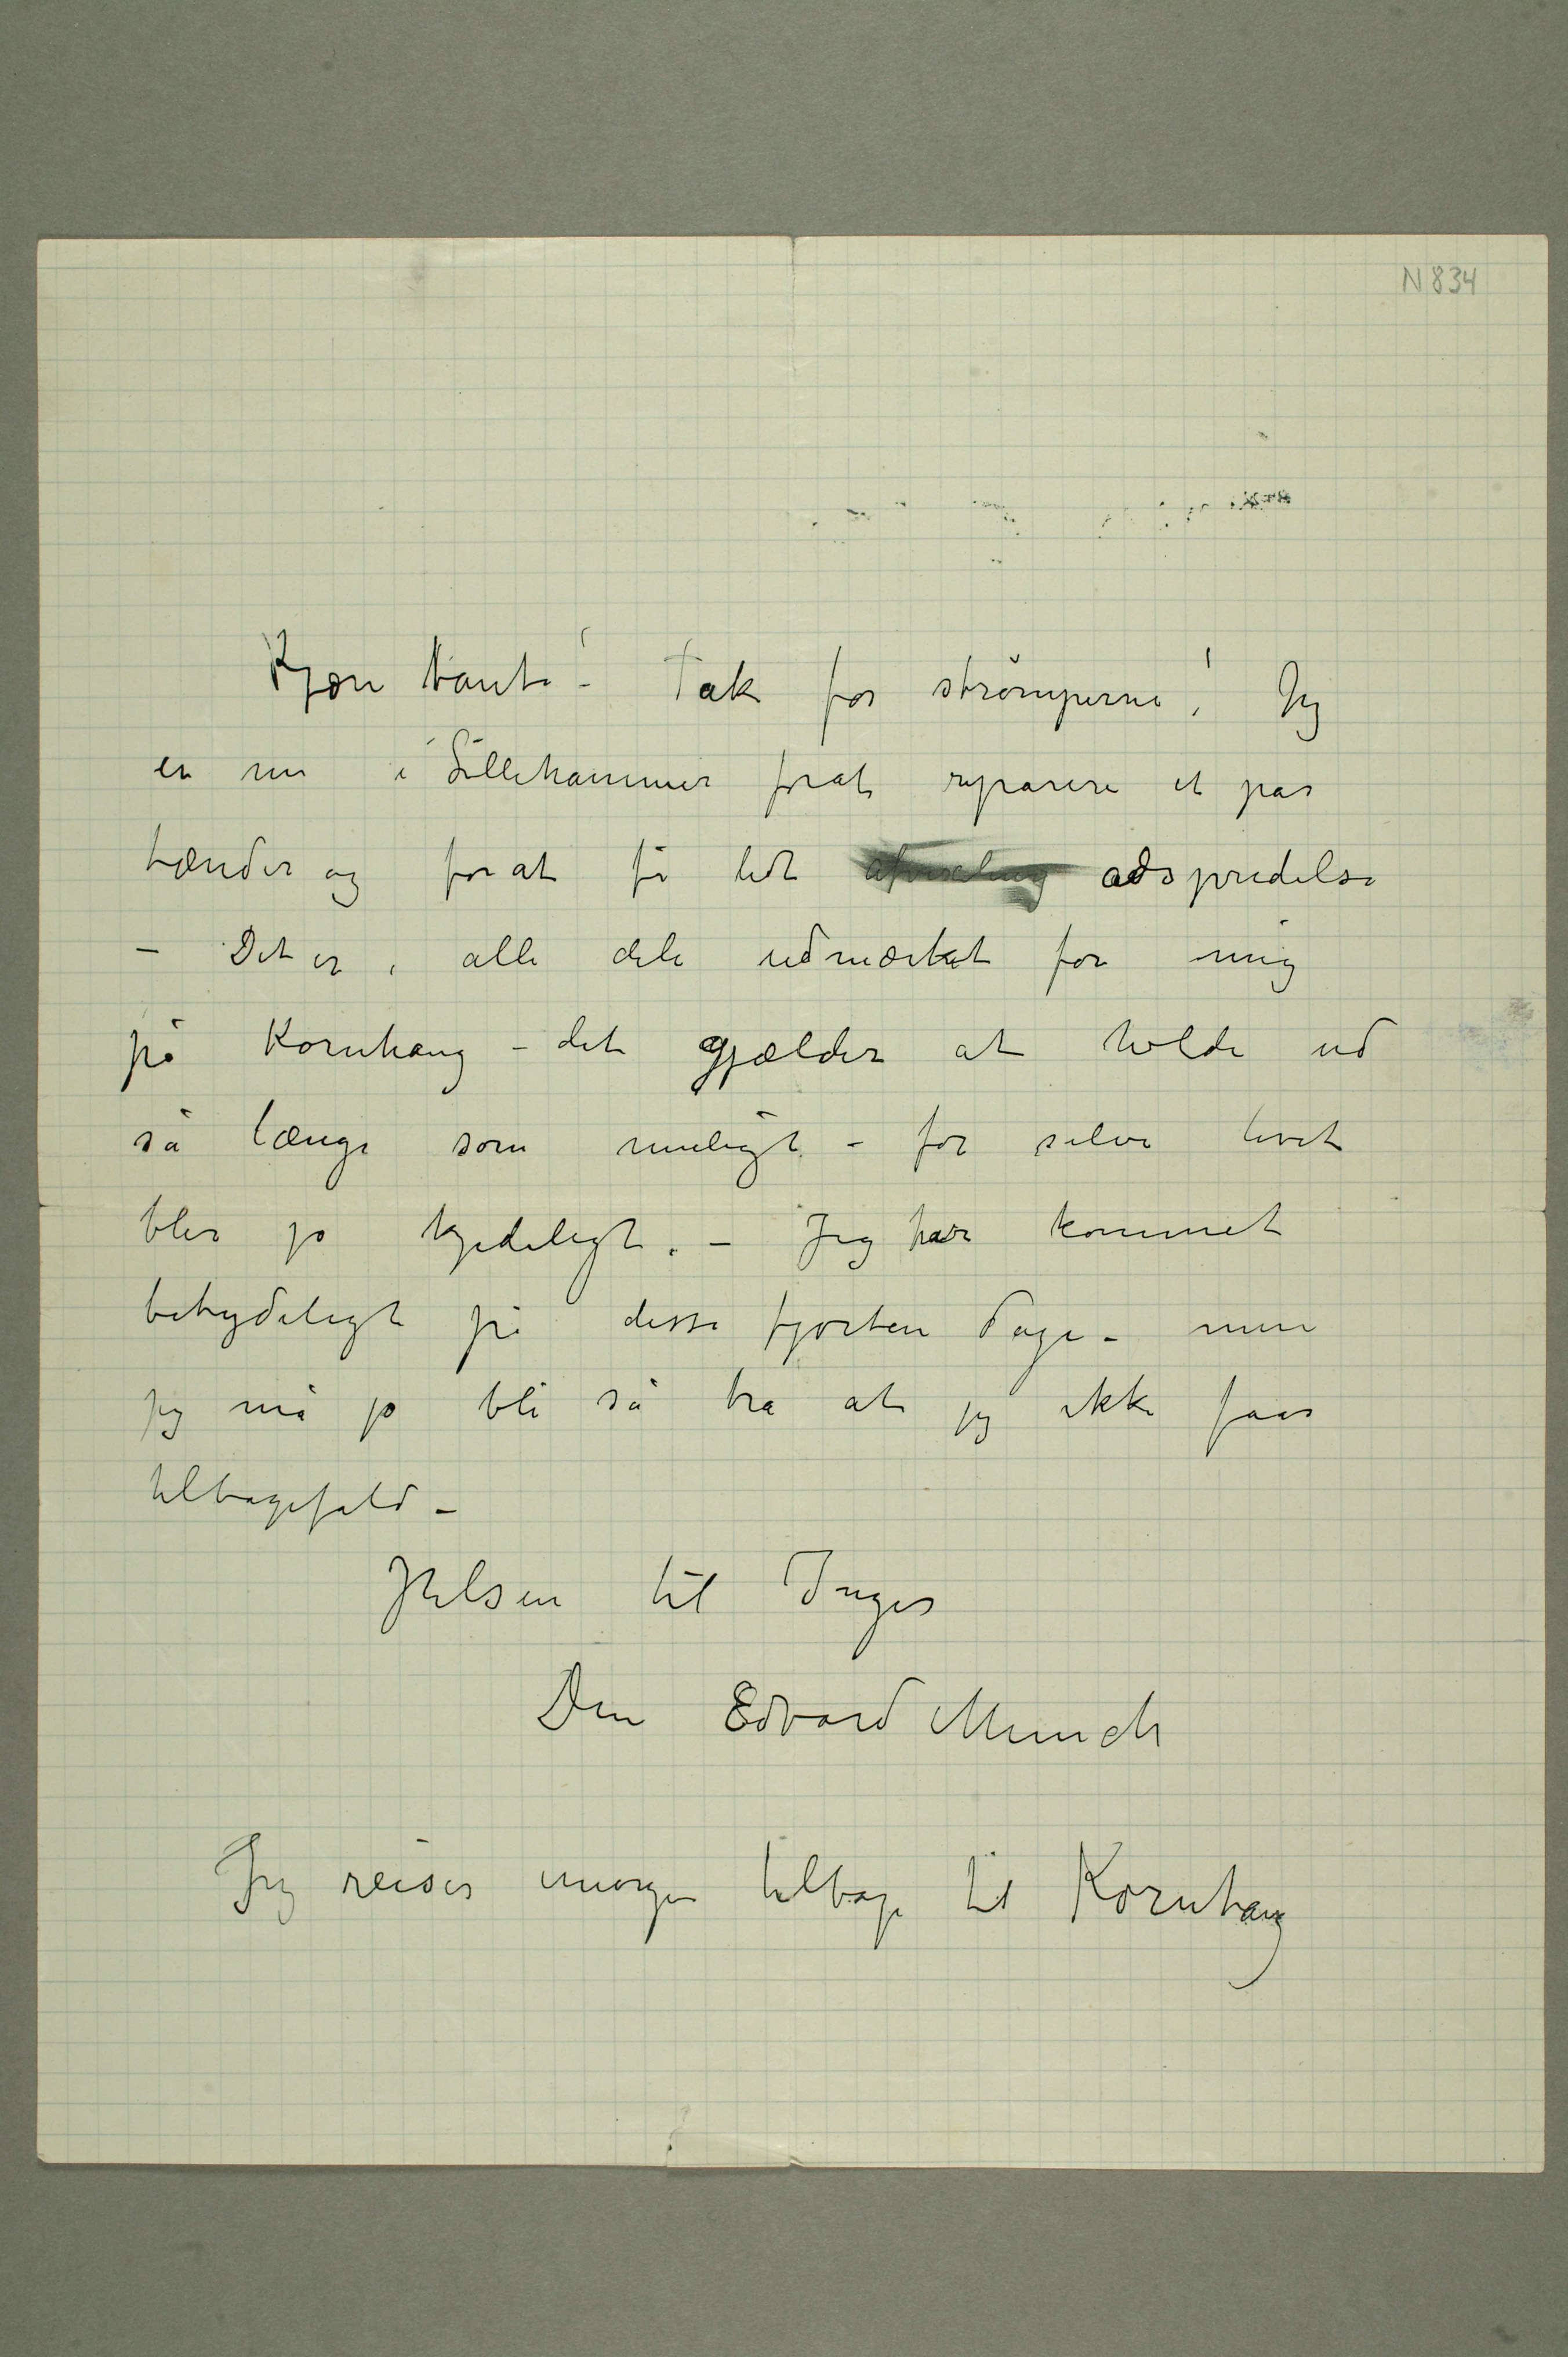 N 834
Kjære tante! – Tak for strömperne! Jeg
er nu i Lillehammer forat reparere et par
tænder og forat få lidt afvexling adspredelse
– Det er i alle dele udmærket for mig
på Kornhaug – det gjælder at holde ud
så længe som muligt – for selve livet
blir jo kjedeligt. – Jeg har kommet
betydeligt på disse fjorten dage – men
jeg må jo bli så bra at jeg ikke faar
tilbagefald –
Hilsen til Inger
Din Edvard Munch
Jeg reiser imorgen tilbage til Kornhaug